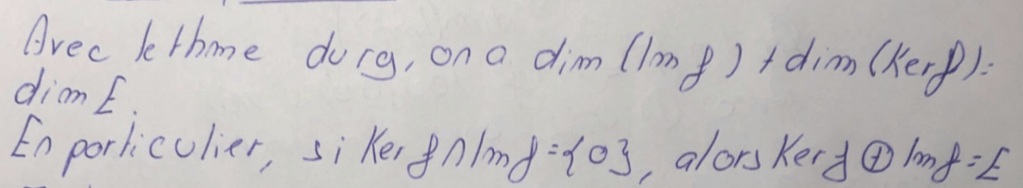 Avec le thme du rg, on a dim (Im f) + dim (Ker f) =
dim E.
En particulier, si Ker f ∩ Im f = {0}, alors Ker f ⊕ Im f = E